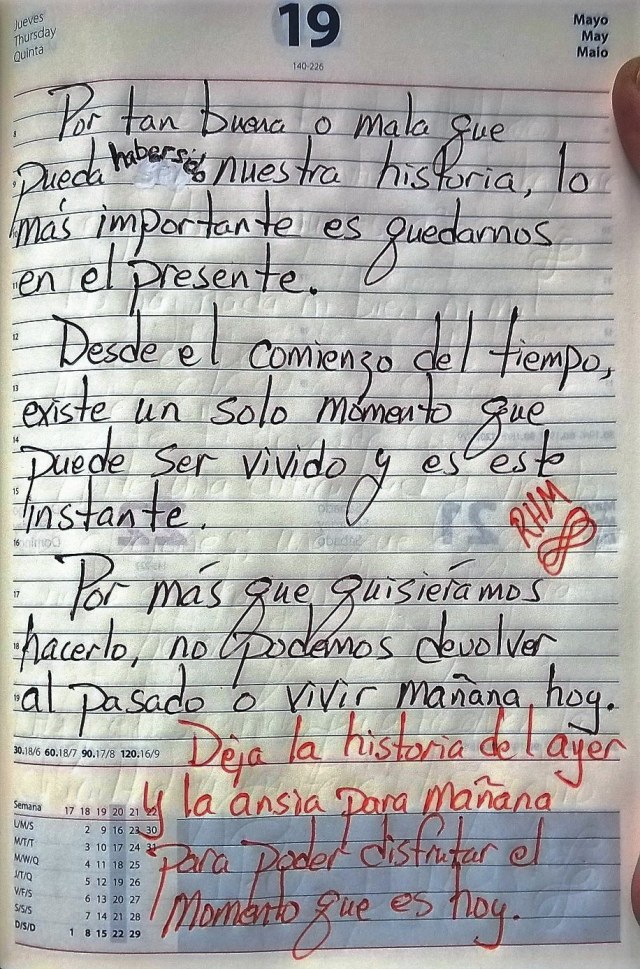 Jueves
Thursday
Quinta
19
140-226
Mayo
May
Maio
Por tan buena o mala que
pueda haber sido nuestra historia, lo
más importante es quedarnos
en el presente.
Desde el comienzo del tiempo,
existe un solo momento que
puede ser vivido y es este
instante.
RHM
Por más que quisierámos
hacerlo, no podemos devolver
al pasado o vivir mañana, hoy.
30.18/6 60.18/7 90.17/8 120.16/9
Deja la historia del ayer
y la ansia para mañana
para poder disfrutar el
momento que es hoy.
Semana 17 18 19 20 21 22
L/M/S 2 9 16 23 30
M/T/T 3 10 17 24 31
M/W/Q 4 11 18 25
J/T/Q 5 12 19 26
V/F/S 6 13 20 27
S/S/S 7 14 21 28
D/S/D 1 8 15 22 29